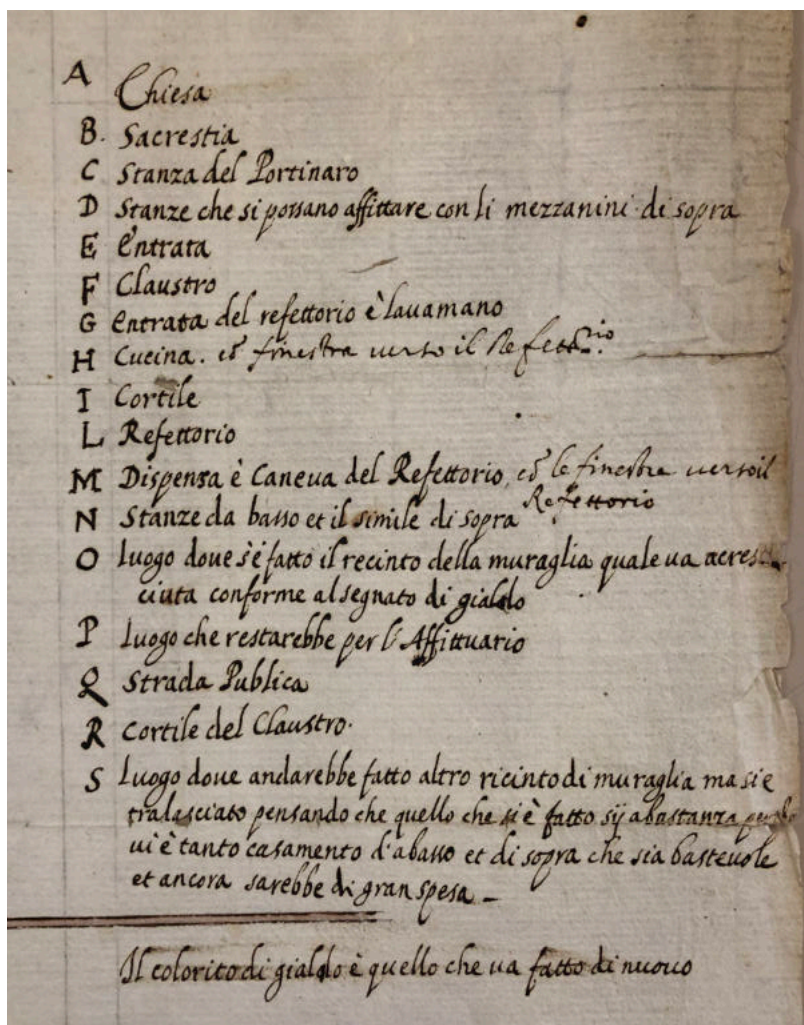 A Chiesa
B. Sacrestia
C Stanza del Portinaro
D Stanze che si possano affittare con li mezzanini di sopra
E Entrata
F Claustro
G Entrata del refettorio è lauamano
H Cucina. cõ finestra uerso il Refett.rio
I Cortile
L Refettorio
M Dispensa è Caneua del Refettorio, cõ le finestre uerso il
Refettorio
N Stanze da basso et il simile di sopra
O Luogo doue s'è fatto il recinto della muraglia quale ua acres
ciuta conforme al segnato di gialdo
P Luogo che restarebbe per l'Affittuario
Q Strada Publica
R Cortile del Claustro.
S Luogo doue andarebbe fatto altro ricinto di muraglia ma si è
tralasciato pensando che quello che si è fatto sÿ abastanza perche
ui è tanto casamento d'abasso et di sopra che sia basteuole
et ancora sarebbe di gran spesa -
Il colorito di gialdo è quello che ua fatto di nuouo